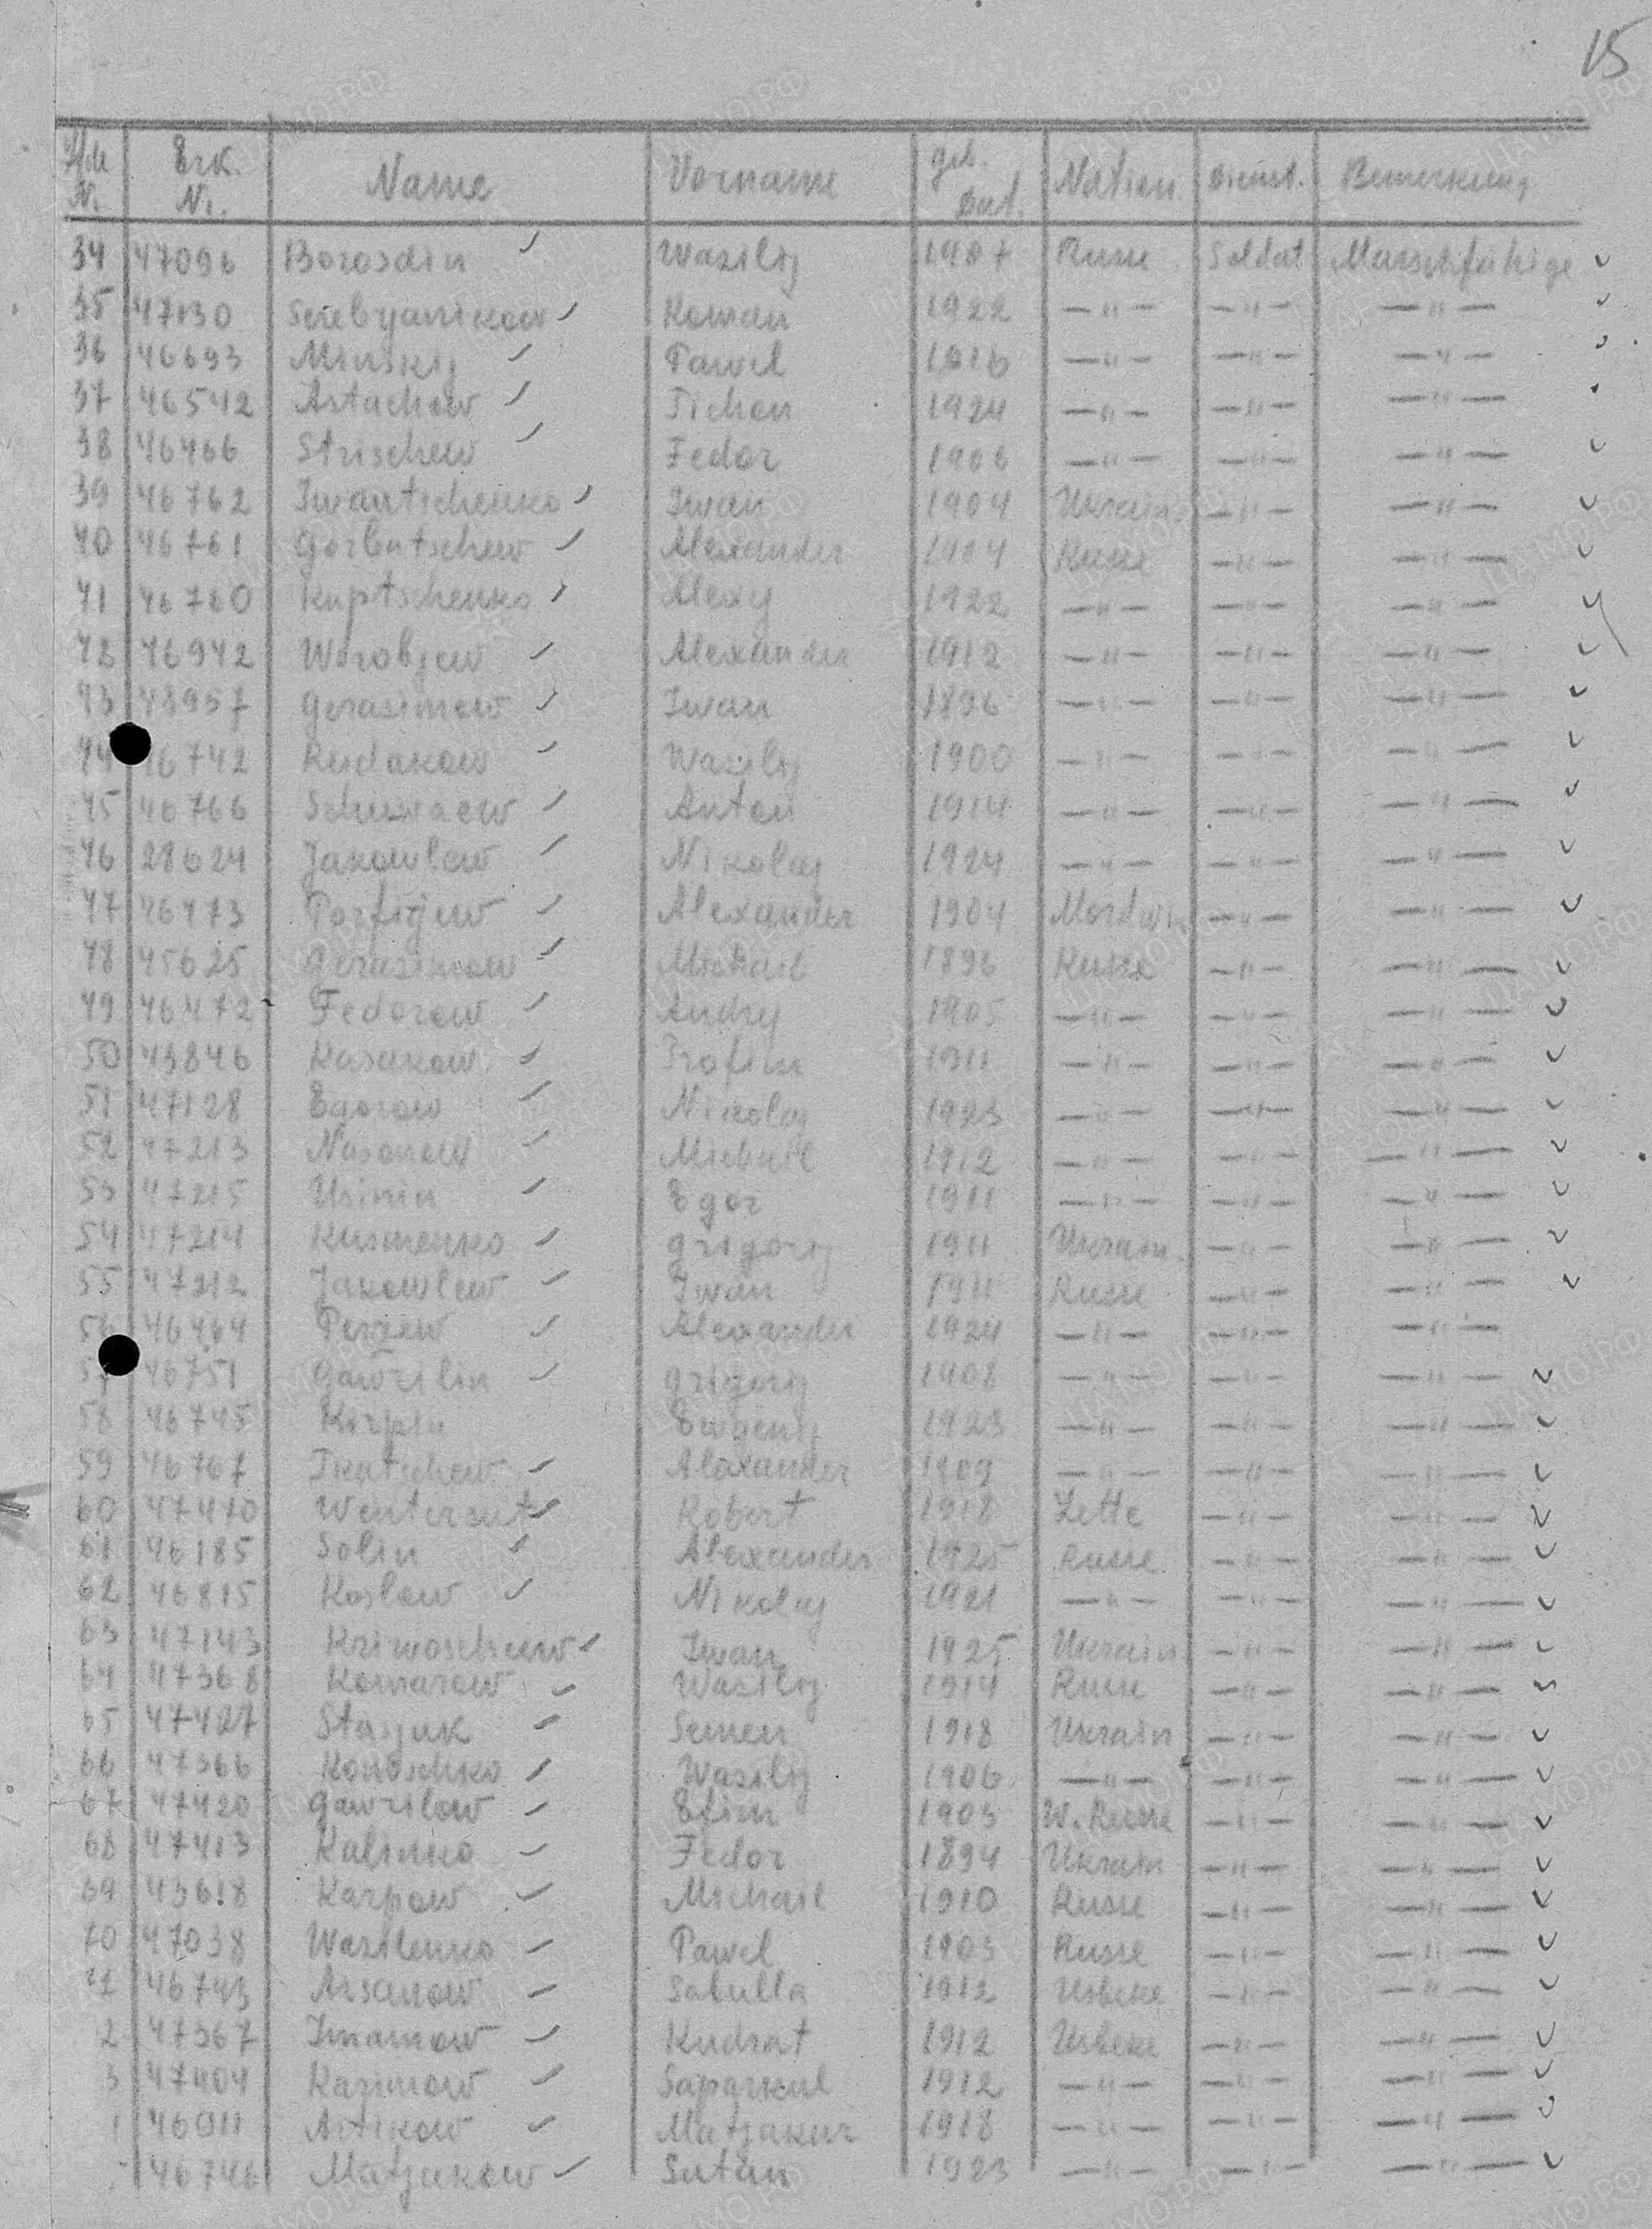 15
Lfde Nr. Erk. Nr. Name Vorname geb. Dat. Nation. Dienst. Bemerkung
34 47096 Borosdin Wasilij 1907 Russe Soldat Marschfähige
35 47130 Serebyanikow Roman 1922 —"— —"— —"—
36 46693 Minskij Pawel 1916 —"— —"— —"—
37 46542 Astachow Tichon 1924 —"— —"— —"—
38 46466 Strischew Fedor 1906 —"— —"— —"—
39 46762 Iwantschenko Iwan 1904 Ukrain. —"— —"—
40 46761 Gorbatschew Alexander 1904 Russe —"— —"—
41 46760 Kuptschenko Alexy 1922 —"— —"— —"—
42 46942 Worobjew Alexander 1912 —"— —"— —"—
43 43957 Gerasimow Iwan 1896 —"— —"— —"—
44 46742 Rudakow Wasilij 1900 —"— —"— —"—
45 46766 Anton 1914 —"— —"— —"—
46 28624 Jakowlew Nikolaj 1924 —"— —"— —"—
47 46473 Porfirjew Alexander 1904 Mordwin —"— —"—
48 45625 Gerasimow Michail 1896 Russe —"— —"—
49 46472 Fedorow Andry 1905 —"— —"— —"—
50 43846 Kasakow Trofim 1911 —"— —"— —"—
51 47128 Egorow Nikolaj 1923 —"— —"— —"—
52 47213 Nasonow Michail 1912 —"— —"— —"—
53 47215 Usinin Egor 1911 —"— —"— —"—
54 47214 Kusmenko Grigorij 1911 Ukrain. —"— —"—
55 47212 Jakowlew Iwan 1911 Russe —"— —"—
56 46464 Perzew Alexander 1924 —"— —"— —"—
57 46751 Gawrilin Grigorij 1908 —"— —"— —"—
58 46745 Kirpin Ewgenij 1923 —"— —"— —"—
59 46767 Tkatschew Alexander 1909 —"— —"— —"—
60 47470 Robert 1918 Lette —"— —"—
61 46185 Solin Alexander 1925 Russe —"— —"—
62 46815 Koslow Nikolaj 1921 —"— —"— —"—
63 47143 Kriwoschew Iwan 1925 Ukrain. —"— —"—
64 47368 Komarow Wasilij 1914 Russe —"— —"—
65 47427 Stasjuk Semen 1918 Ukrain —"— —"—
66 47366 Konoschko Wasilij 1906 —"— —"— —"—
67 47420 Gawrilow Efim 1903 W. Russe —"— —"—
68 47413 Kalinko Fedor 1894 Ukrain —"— —"—
69 43618 Karpow Michail 1910 Russe —"— —"—
70 47038 Wasilenko Pawel 1903 Russe —"— —"—
46743 Arsanow Sabulla 1912 Usbeke —"— —"—
2 47367 Imamow Kudrat 1912 Usbeke —"— —"—
3 47404 Kasimow Saparkul 1912 —"— —"— —"—
46911 Artikow Matjakur 1918 —"— —"— —"—
46746 Matjakow Sutan 1923 —"— —"— —"—
ЦАМО.РФ